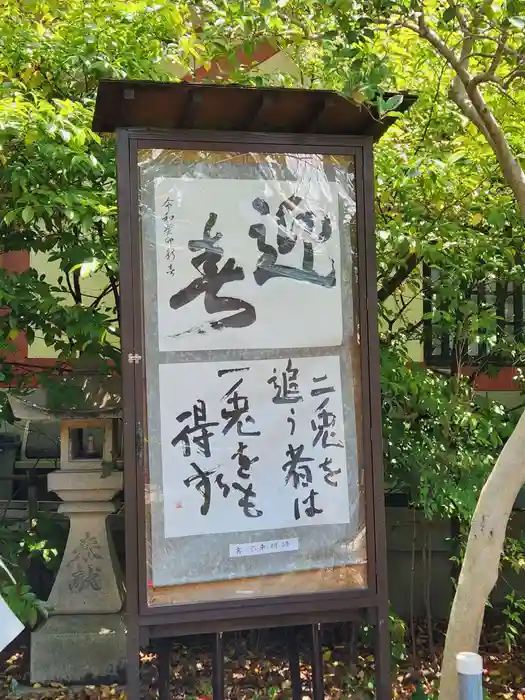 迎春
令和癸卯
二兎を
追う者は
一兎をも
得ず
奉